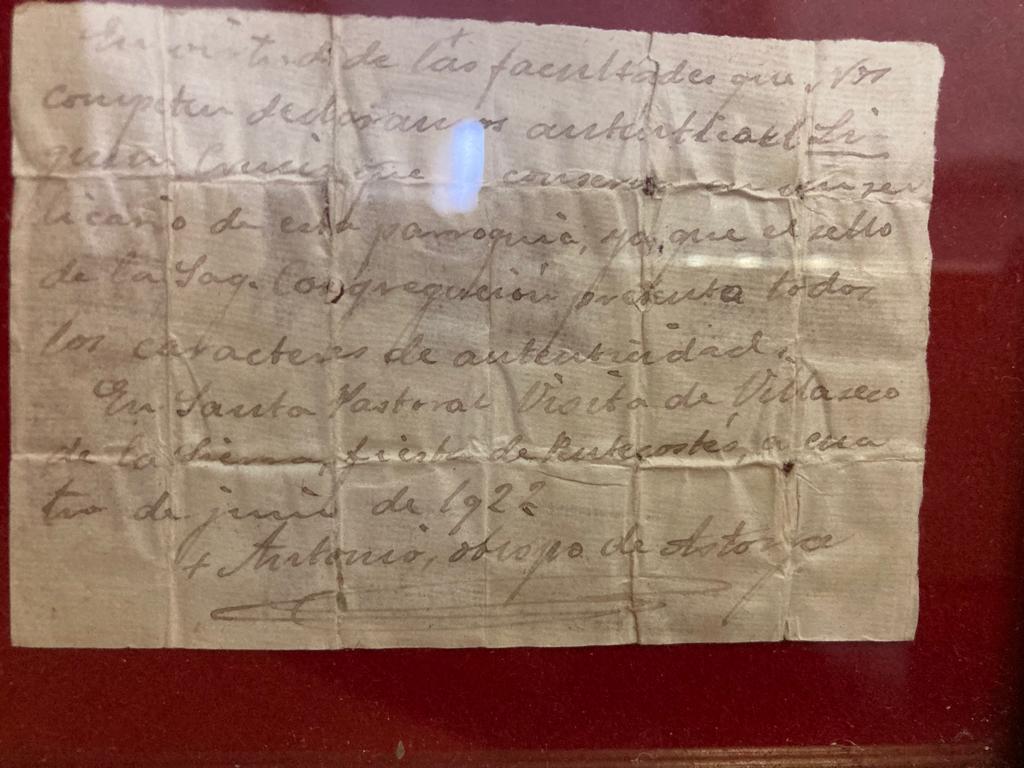 En virtud de las facultades que Nos
competen declaramos auténtica el Lig-
num Crucis que conserva en un re
licario de esta parroquia, ya que el sello
de la Sag. Congregación presenta todos
los caracteres de autenticidad.
En Santa Pastoral Visita de Villaseco
de la Sierra, fiesta de Pentecostés, a cua
tro de junio de 1922
+ Antonio, obispo de Astorga